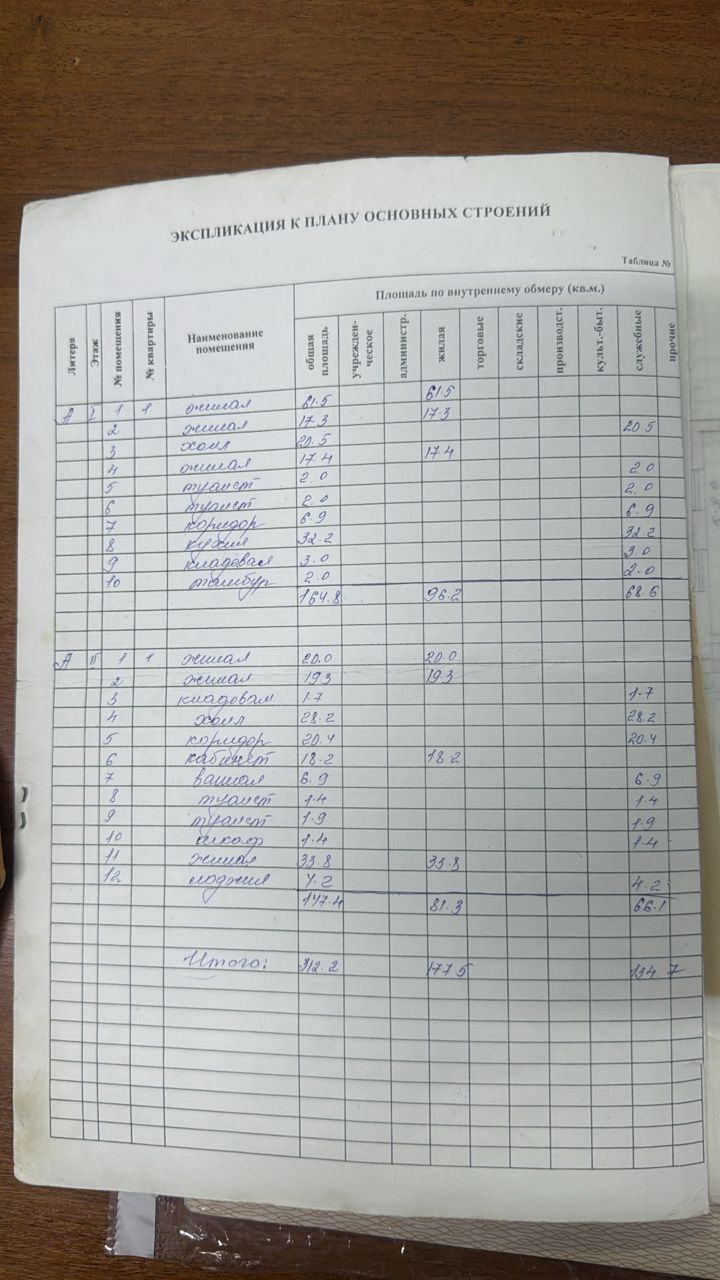 ЭКСПЛИКАЦИЯ К ПЛАНУ ОСНОВНЫХ СТРОЕНИЙ
Таблица №
Литера Этаж № помещения № квартиры Наименование помещения Площадь по внутреннему обмеру (кв.м.)
общая площадь учрежден-ческое администр. жилая торговые складские производст. культ.-быт. служебные прочие
А I 1 1 жилая 61.5 61.5
2 жилая 17.3 17.3
3 холл 20.5 20.5
4 жилая 17.4 17.4
5 туалет 2.0 2.0
6 туалет 2.0 2.0
7 коридор 6.9 6.9
8 кухня 32.2 32.2
9 кладовая 3.0 3.0
10 тамбур 2.0 2.0
164.8 96.2 68.6
А II 1 1 жилая 20.0 20.0
2 жилая 19.3 19.3
3 кладовая 1.7 1.7
4 холл 28.2 28.2
5 коридор 20.4 20.4
6 кабинет 18.2 18.2
7 ванная 6.9 6.9
8 туалет 1.4 1.4
9 туалет 1.9 1.9
10 шкаф 1.4 1.4
11 жилая 33.8 33.8
12 лоджия 4.2
147.4 81.3 66.1
Итого: 312.2 177.5 134.7